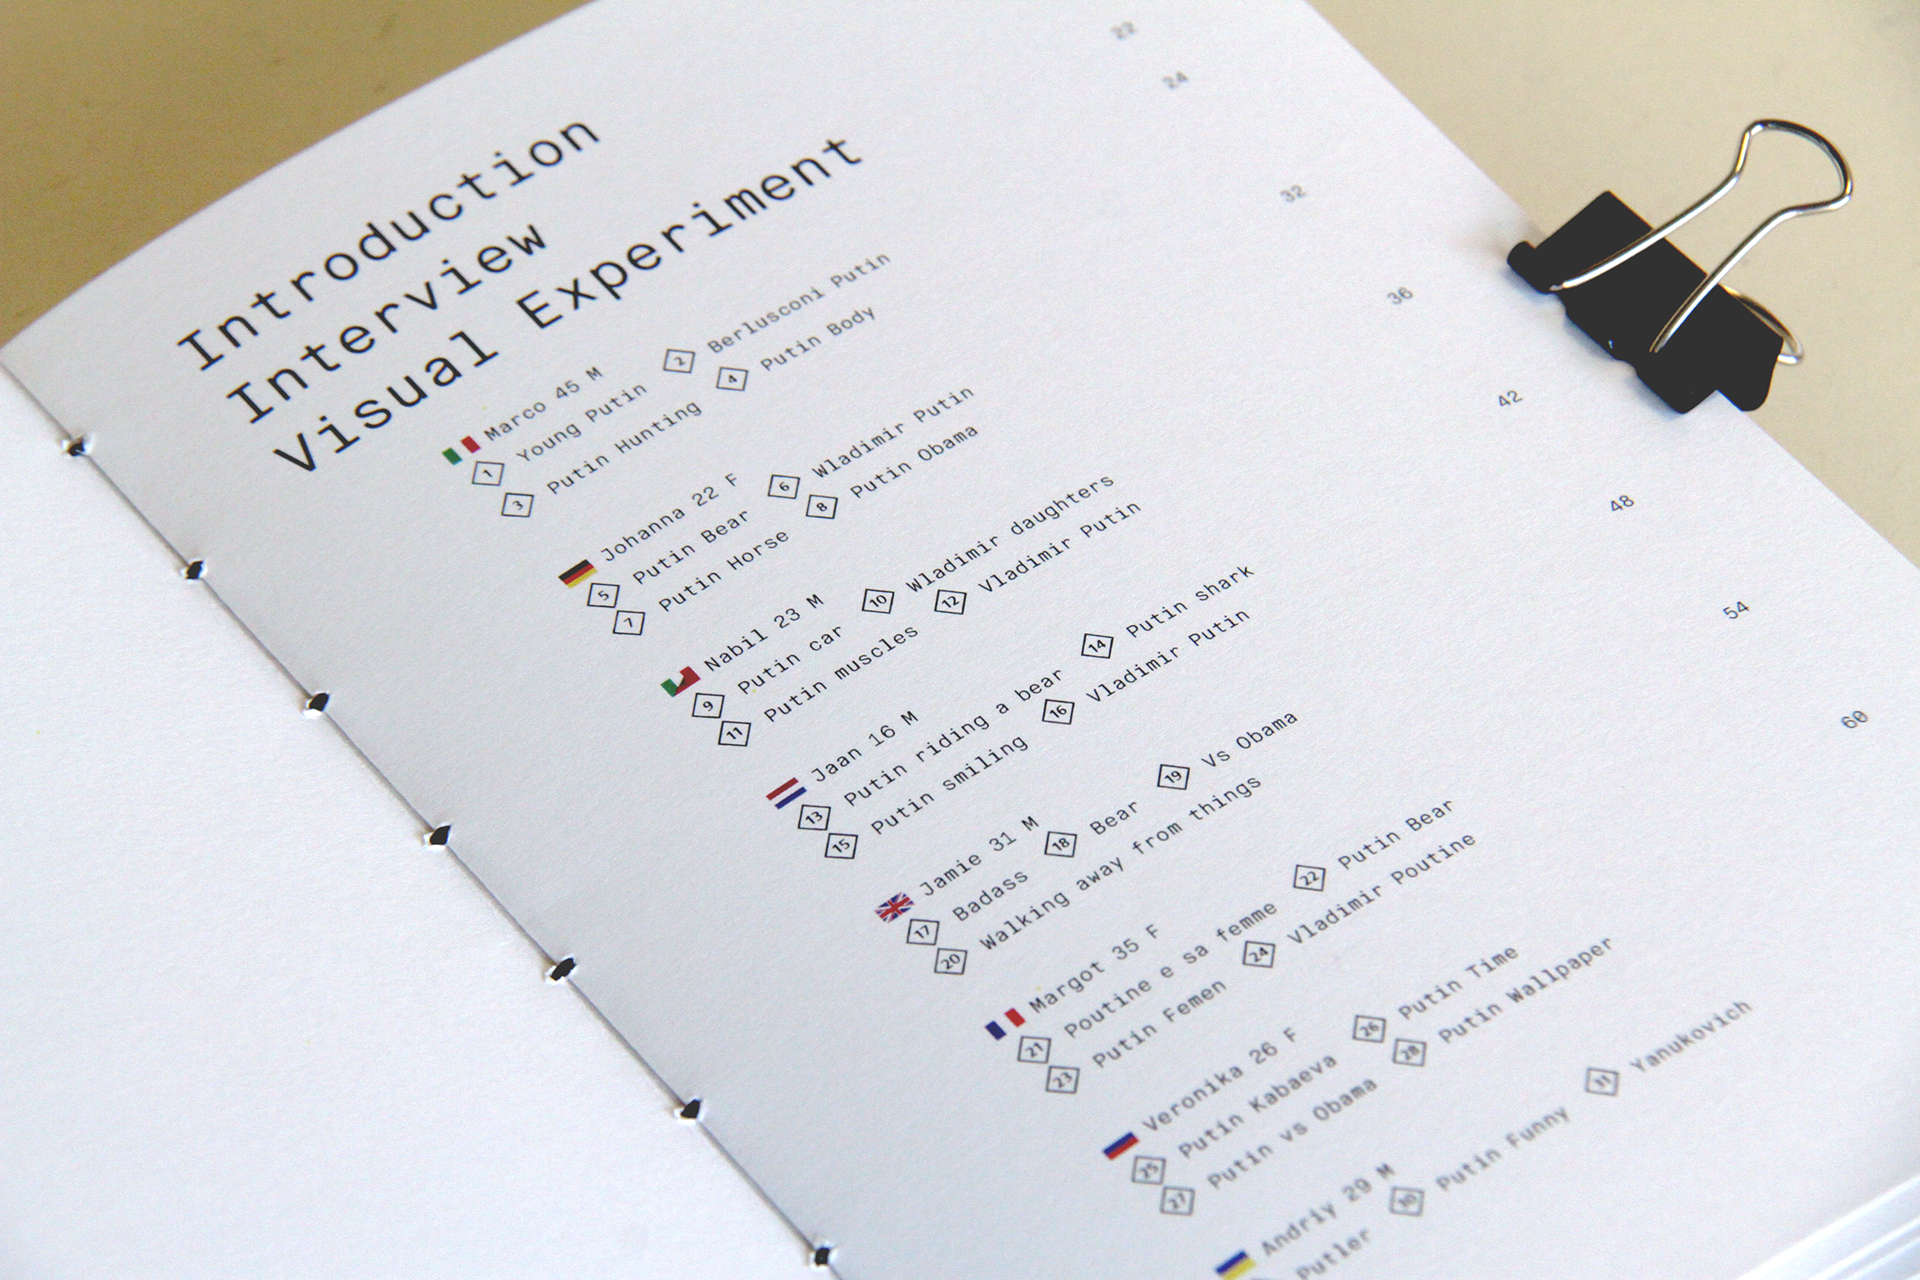 Introduction
Interview
Visual Experiment 22
Marco 45 M 24
1 Young Putin 2 Berlusconi Putin
3 Putin Hunting 4 Putin Body
Johanna 22 F 32
5 Putin Bear 6 Wladimir Putin
7 Putin Horse 8 Putin Obama
Nabil 23 M 36
9 Putin car 10 Wladimir daughters
11 Putin muscles 12 Vladimir Putin
Jaan 16 M 42
13 Putin riding a bear 14 Putin shark
15 Putin smiling 16 Vladimir Putin
Jamie 31 M 48
17 Badass 18 Bear 19 Vs Obama
20 Walking away from things
Margot 35 F 54
21 Poutine e sa femme 22 Putin Bear
23 Putin Femen 24 Vladimir Poutine
Veronika 26 F 60
25 Putin Kabaeva 26 Putin Time
27 Putin vs Obama 28 Putin Wallpaper
Andriy 29 M
Putler 30 Putin Funny 31 Yanukovich